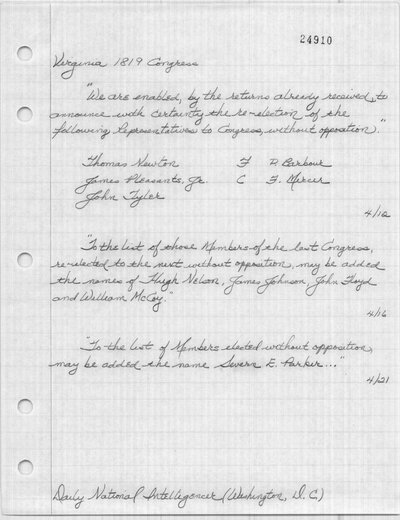 24910
Virginia 1819 Congress
"We are enabled, by the returns already received, to
announce with certainty the re-election of the
following Representatives to Congress, without opposition."
Thomas Newton P. P. Barbour
James Pleasants, Jr. C. F. Mercer
John Tyler
4/12
"To the list of those Members of the last Congress,
re-elected to the next without opposition, may be added
the names of Hugh Nelson, James Johnson, John Floyd
and William McCoy."
4/16
"To the list of Members elected without opposition,
may be added the name Severn E. Parker..."
4/21
Daily National Intelligencer (Washington, D.C.)